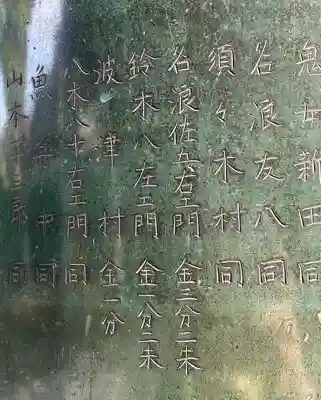 鬼女新田 同
名浪友八 同
須々木村 同
名浪佐五右エ門 金三分二朱
鈴木八左エ門 金一分二朱
波津村 金一分
八木八十右エ門 同
魚 中 同
山本平三郎 同